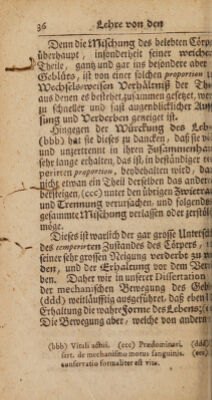 36 Lehre von den
Denn die Mischung des belebten Cörp
überhaupt, insonderheit seiner weichen
Theile, gantz und gar ins besondere aber
Geblüts, ist von einer solchen proportion
Wechsels-weisen Verhältniß der Th
aus denen es bestehet, zusammen gesetzet, wel
zu schneller und fast augenblicklicher
sung und Verderben geneiget ist.
Hingegen der Würckung des Leb
(bbb) hat sie dieses zu dancken, daß sie
und unzertrennt in ihren Zusammenhan
sehr lange erhalten, das ist, in beständiger te
perirten proportion, beybehalten wird, da
nicht etwan ein Theil derselben das ander
bersteigen, (ccc) unter den übrigen Zwietra
und Trennung verursachen, und folgends
gesammte Mischung verlassen oder zerstö
möge.
Dieses ist warlich der gar grosse Untersch
des temperirten Zustandes des Cörpers,
seiner sehr grossen Neigung verderbt zu w
den, und der Erhaltung vor dem Ver
ben. Daher wir in unserer Dissertation
der mechanischen Bewegung des Geb
(ddd) weitläufftig ausgeführet, daß eben
Erhaltung die wahre Forme des Lebens
Die Bewegung aber, welche von andern
(bbb) Vitali actui. (ccc) Prædominari.
sert. de mechanismo motus sanguinis.
conservatio formaliter est vita.